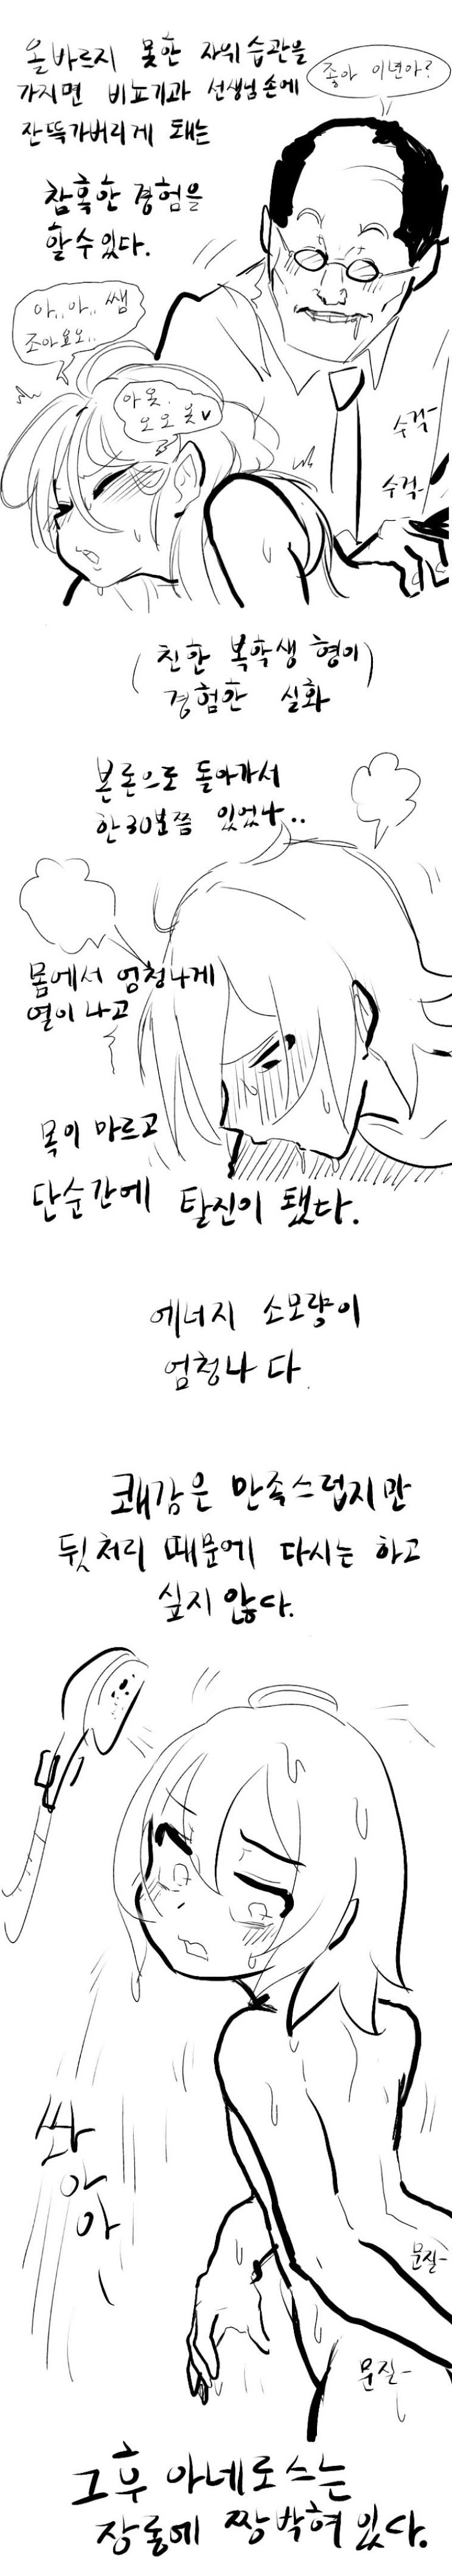 올바르지 못한 자위습관을
가지면 비뇨기과 선생님손에
잔뜩가버리게 돼는
참혹한 경험을
할수있다.
좋아 이년아?
아.. 아.. 쌤
조아요오..
아읏.
오오옷♥
수걱-
수걱-
(친한 복학생 형이
경험한 실화)
본론으로 돌아가서
한30분쯤 있었나..
몸에서 엄청나게
열이 나고
목이 마르고
단순간에 탈진이 됐다.
에너지 소모량이
엄청나다.
쾌감은 만족스럽지만
뒷처리 때문에 다시는 하고
싶지 않다.
쏴
아
아
문질-
문질-
그후 아네로스는
장롱에 짱박혀 있다.